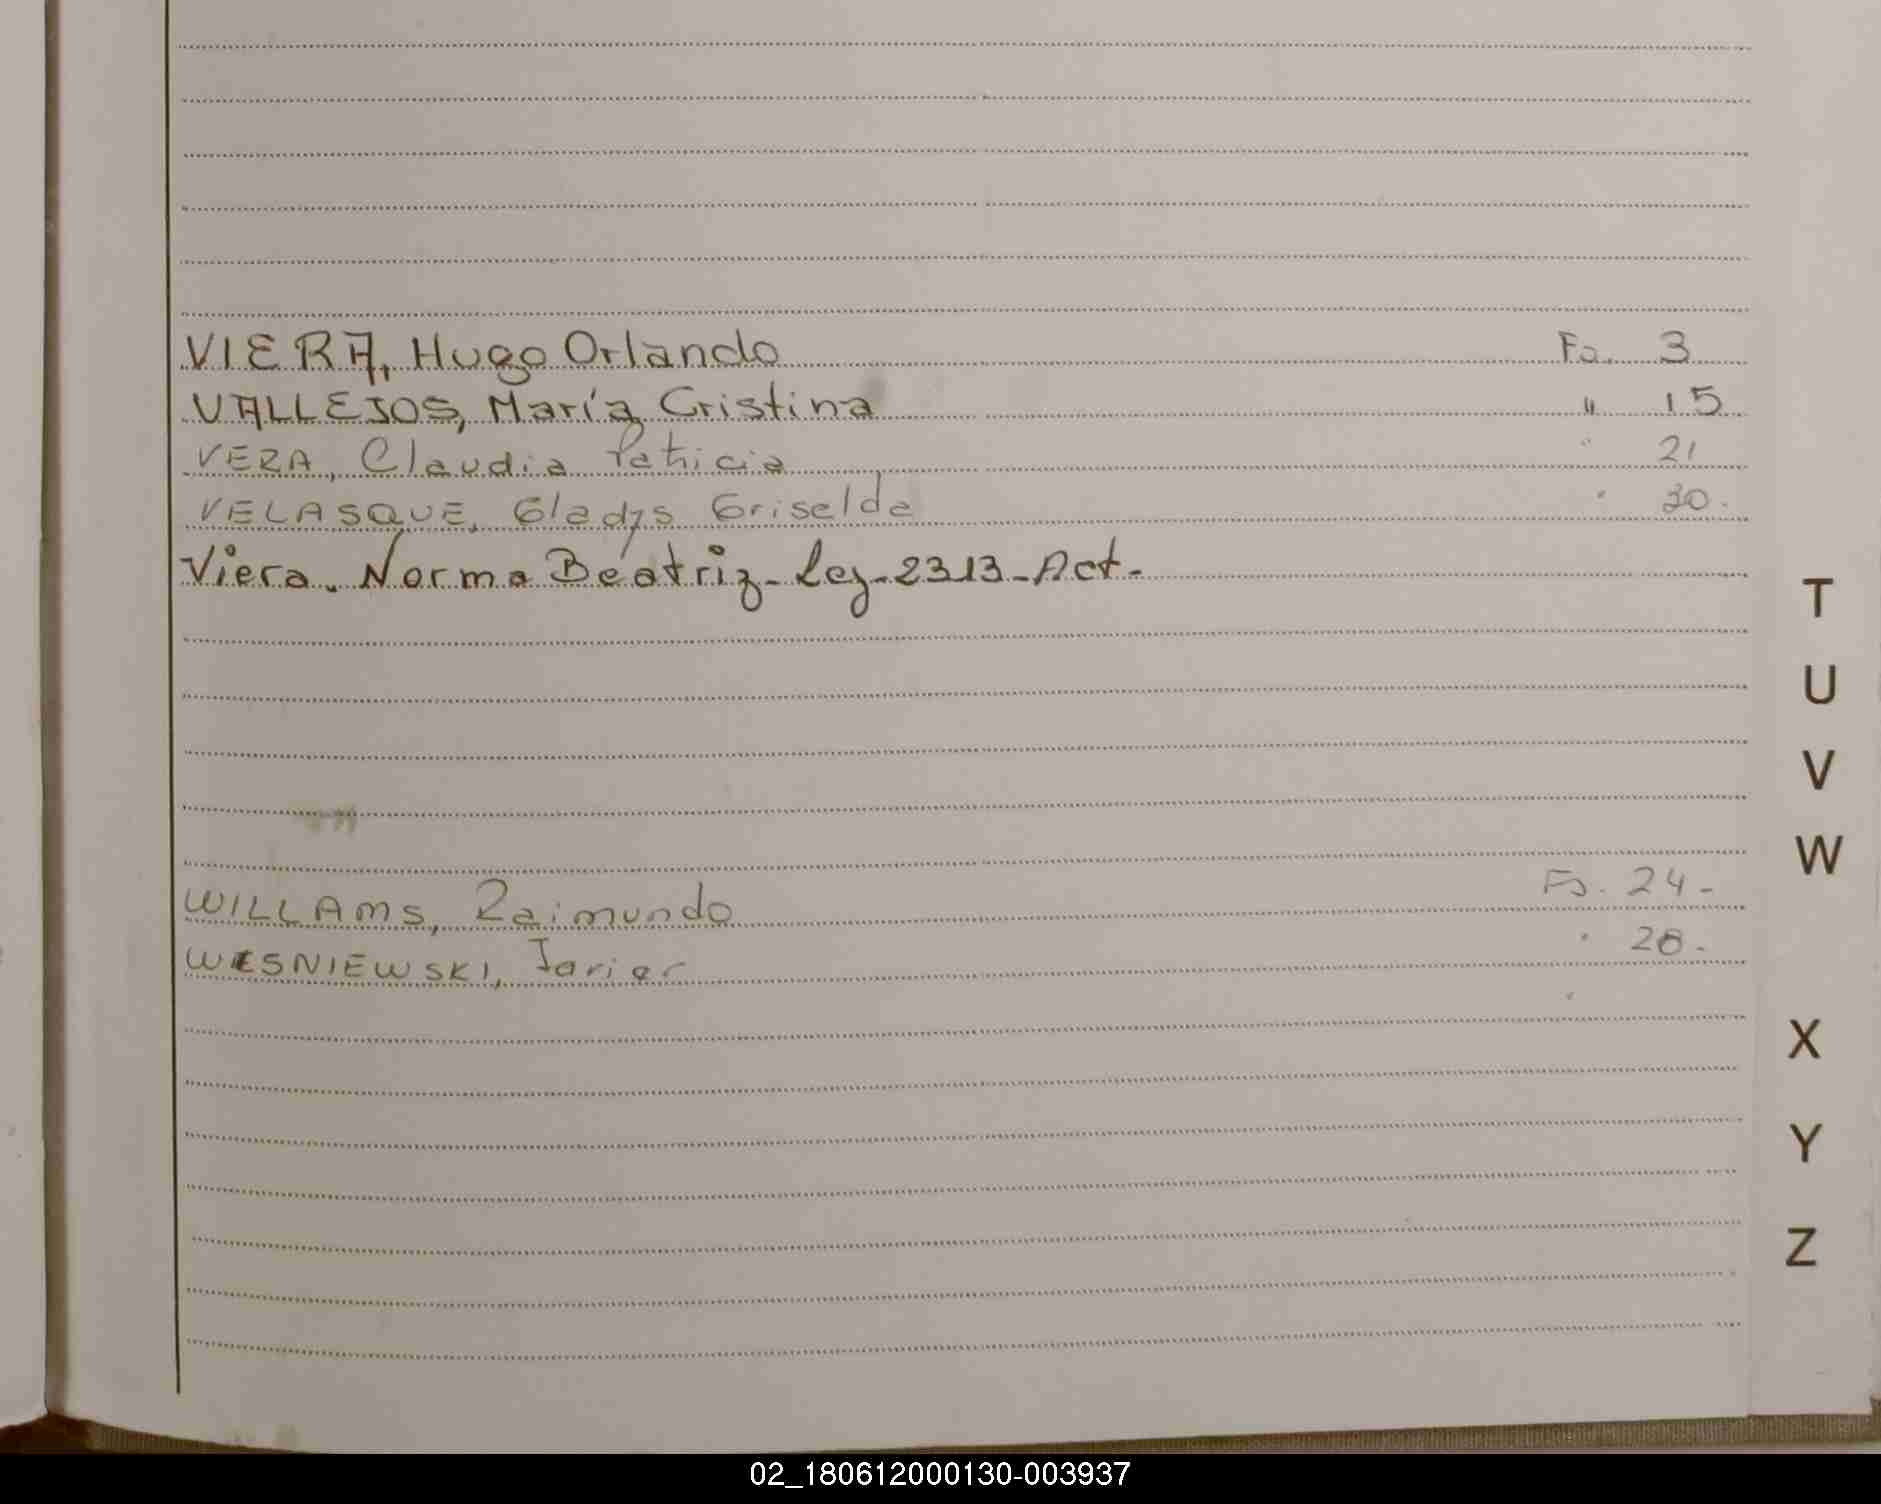 VIERA, Hugo Orlando Fo. 3
VALLEJOS, María Cristina " 15
VERA, Claudia Patricia " 21
VELASQUE, Gladys Griselda " 30.
Viera. Norma Beatriz - Ley - 2313 - Act -
T
U
V
W
WILLAMS, Raimundo Fo. 24 -
WESNIEWSKI, Javier " 28 -
X
Y
Z
02_180612000130-003937